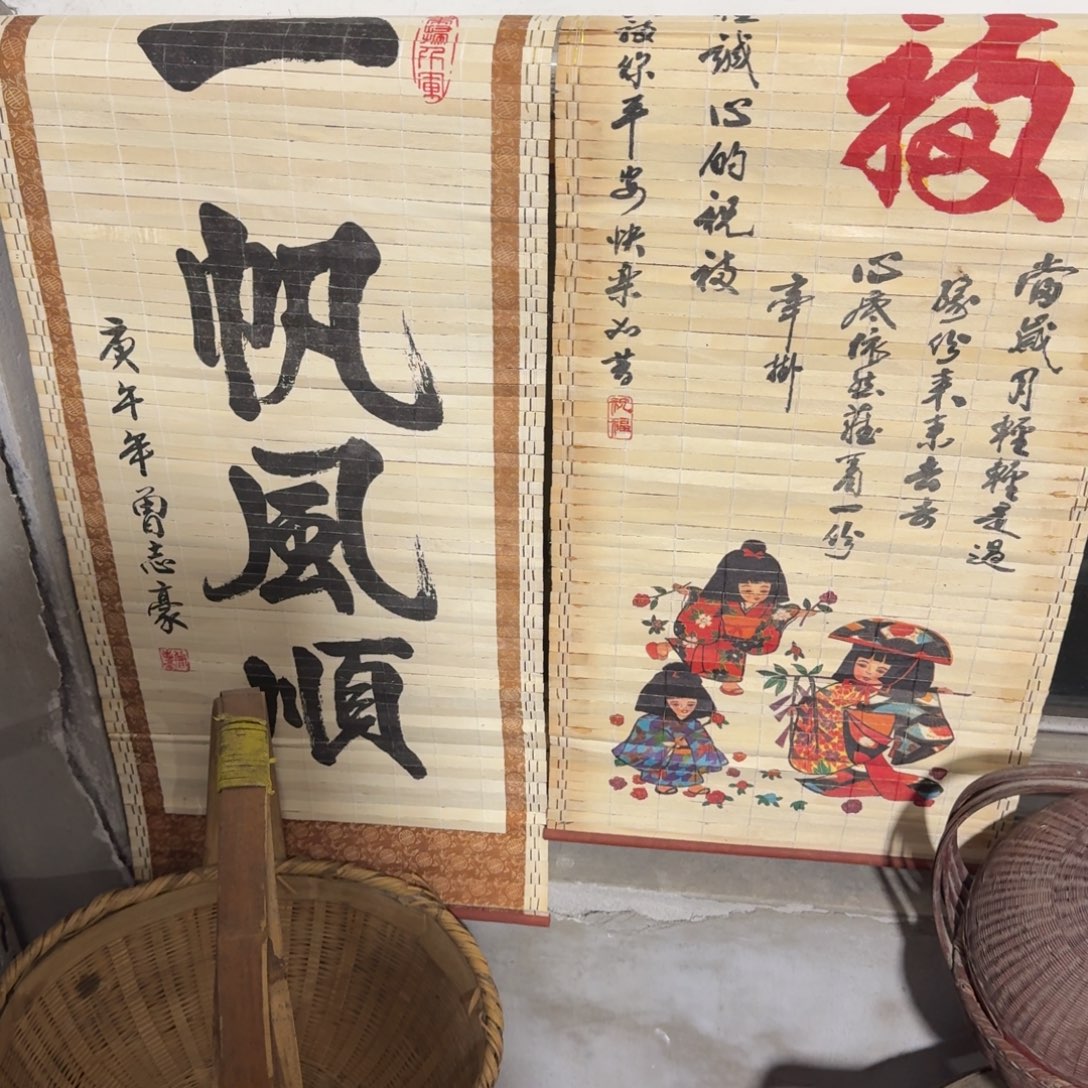 一帆風順
庚午年 曾志豪
福
當歲月輕輕走過
緣份来来去去
心底依然藏着一份
牽掛
誠心的祝福
你平安快楽如昔
祝福